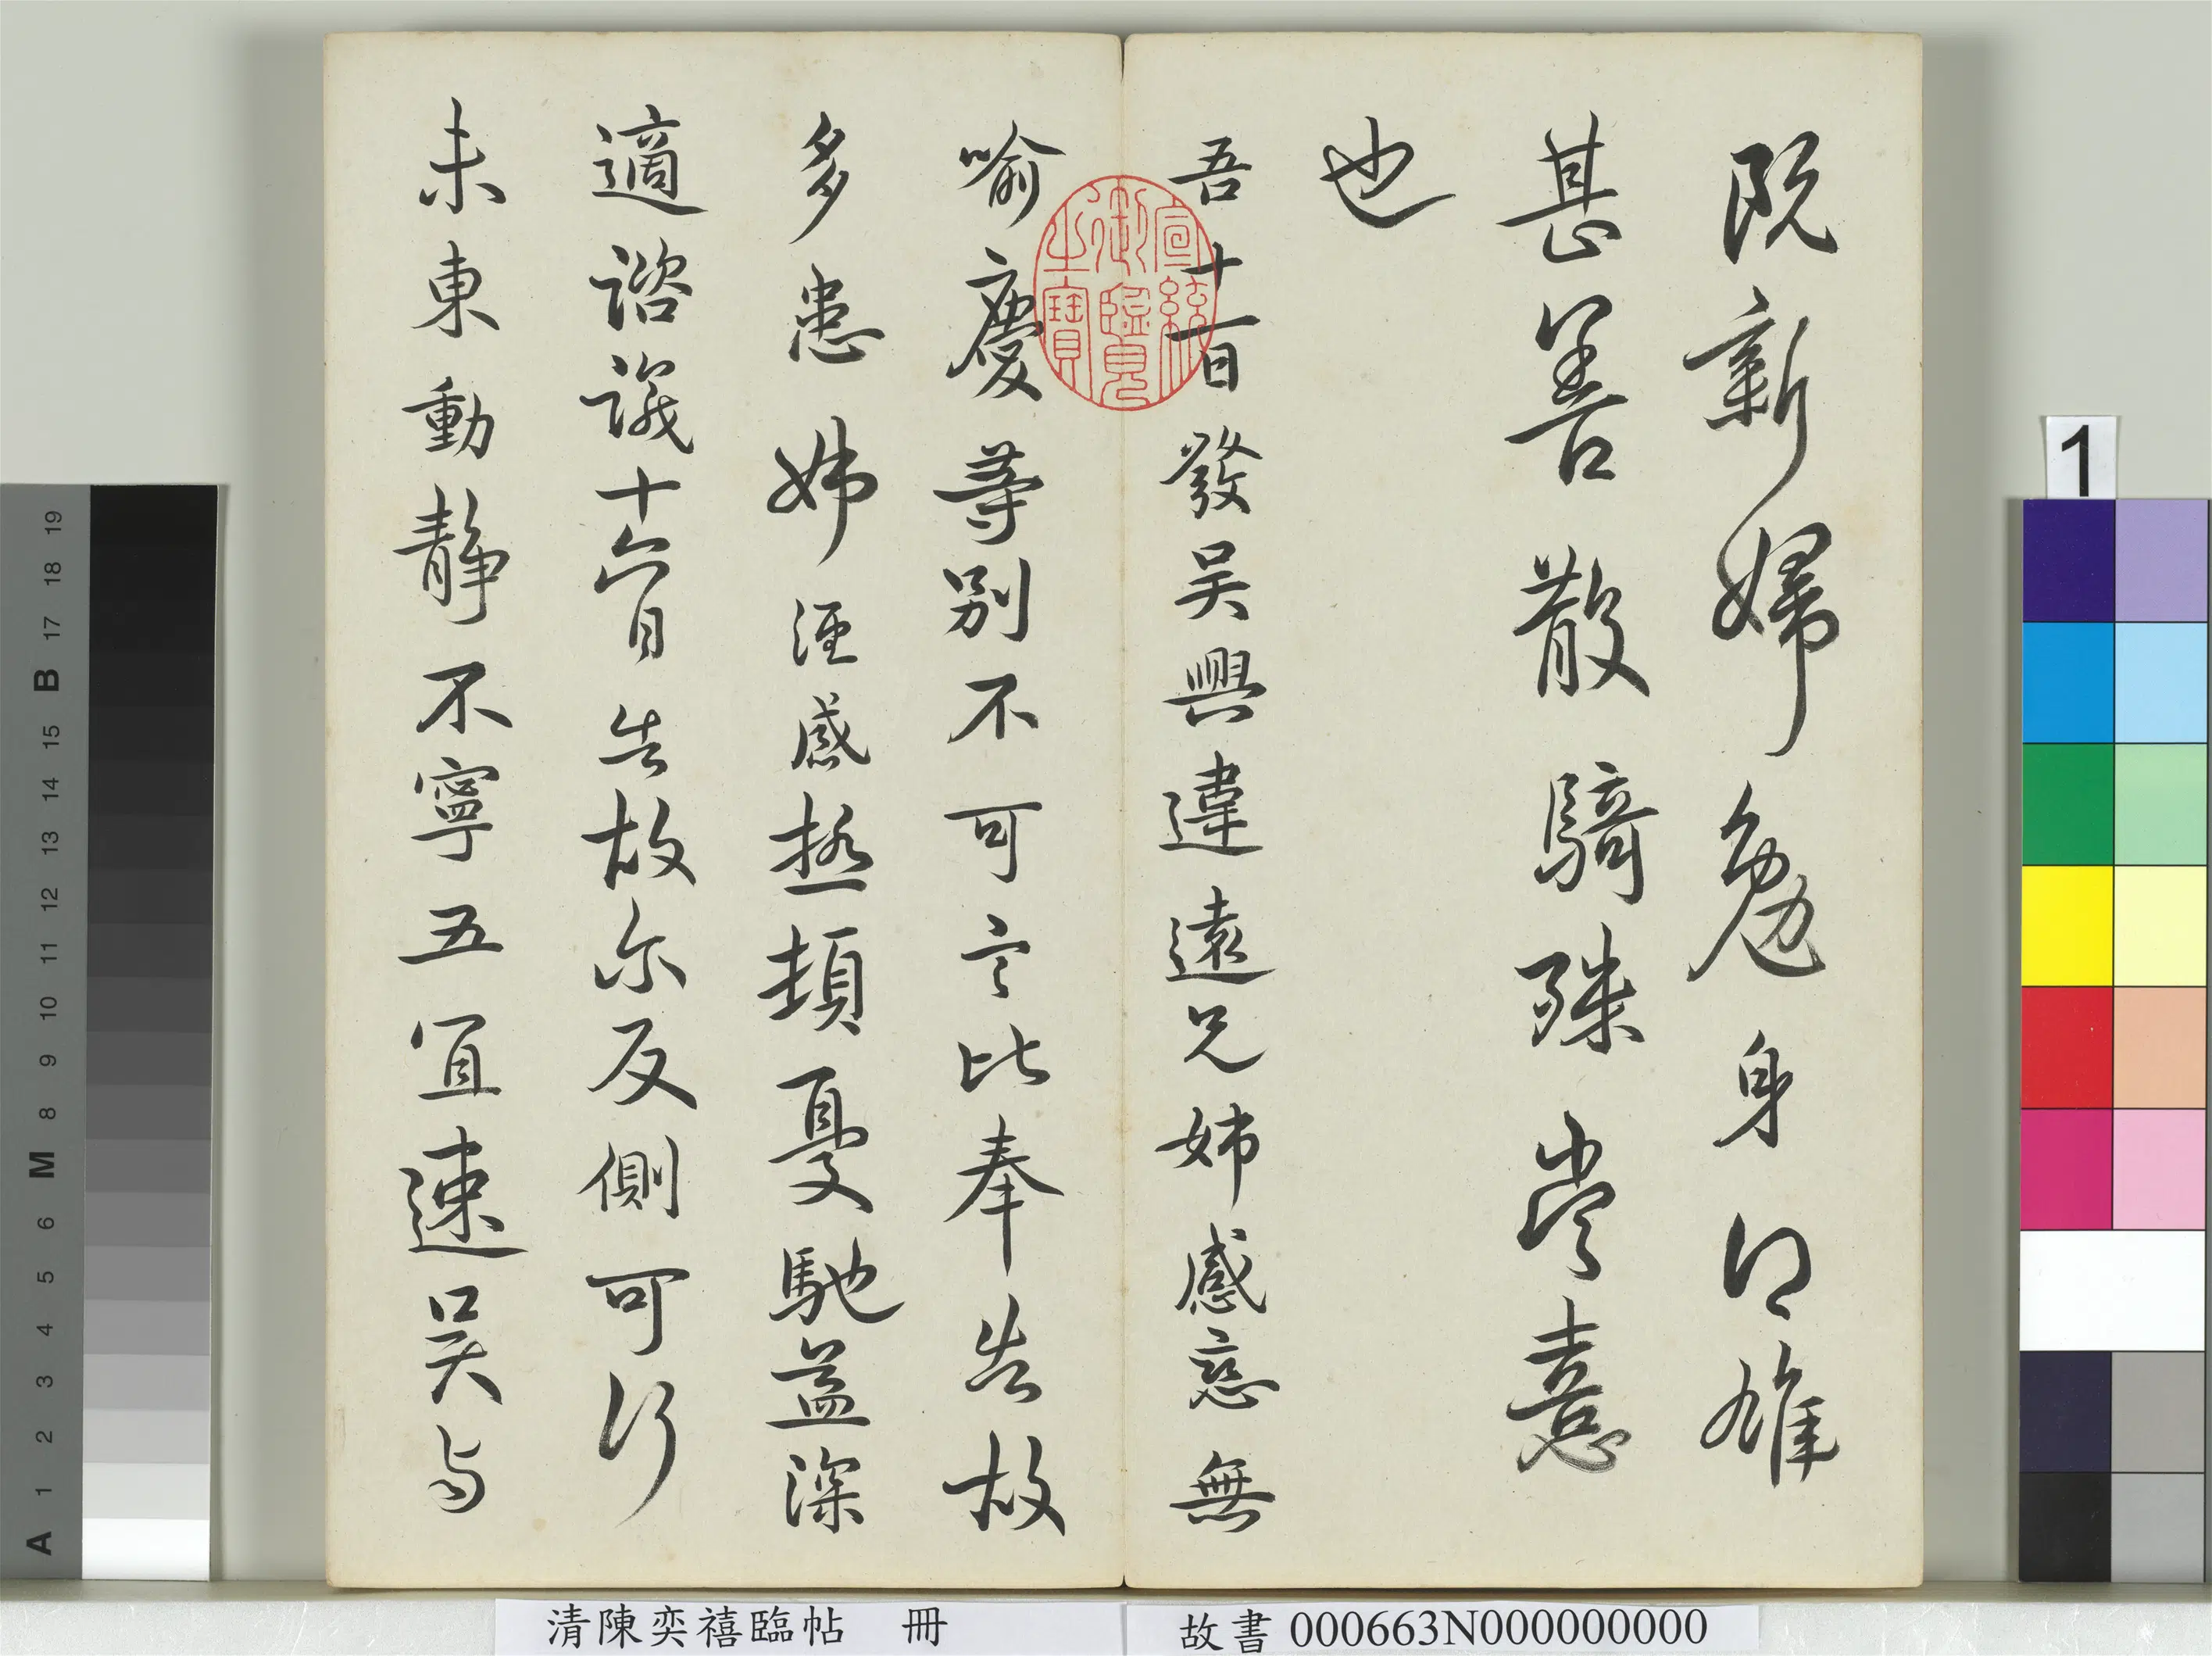 阮新婦勉身得雄
甚善散騎殊當憙
也
吾十一日發吳興違遠兄姊感戀無
喻慶等別不可言比奉告故
多患姊經感極頓憂馳益深
適諮議十六日告故尔反側可行
未東動靜不寧五宜速吳与
宣統御覽之寶
清陳奕禧臨帖 冊
故書 000663N000000000
1
A 1 2 3 4 5 6 M 8 9 10 11 12 13 14 15 B 17 18 19